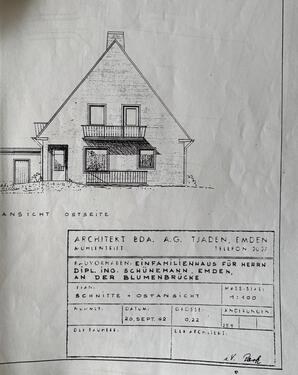 ANSICHT OSTSEITE
ARCHITEKT BDA. A.G. TJADEN, EMDEN
TELEFON
BAUVORHABEN: EINFAMILIENHAUS FÜR HERRN
DIPL. ING. SCHÜNEMANN, EMDEN,
AN DER BLUMENBRÜCKE
PLAN: MASS-STAB:
SCHNITTE + OSTANSICHT 1:100
DATUM: GRÖSSE: ÄNDERUNGEN
SEPT. 0,22
DER BAUHERR: DER ARCHITEKT: